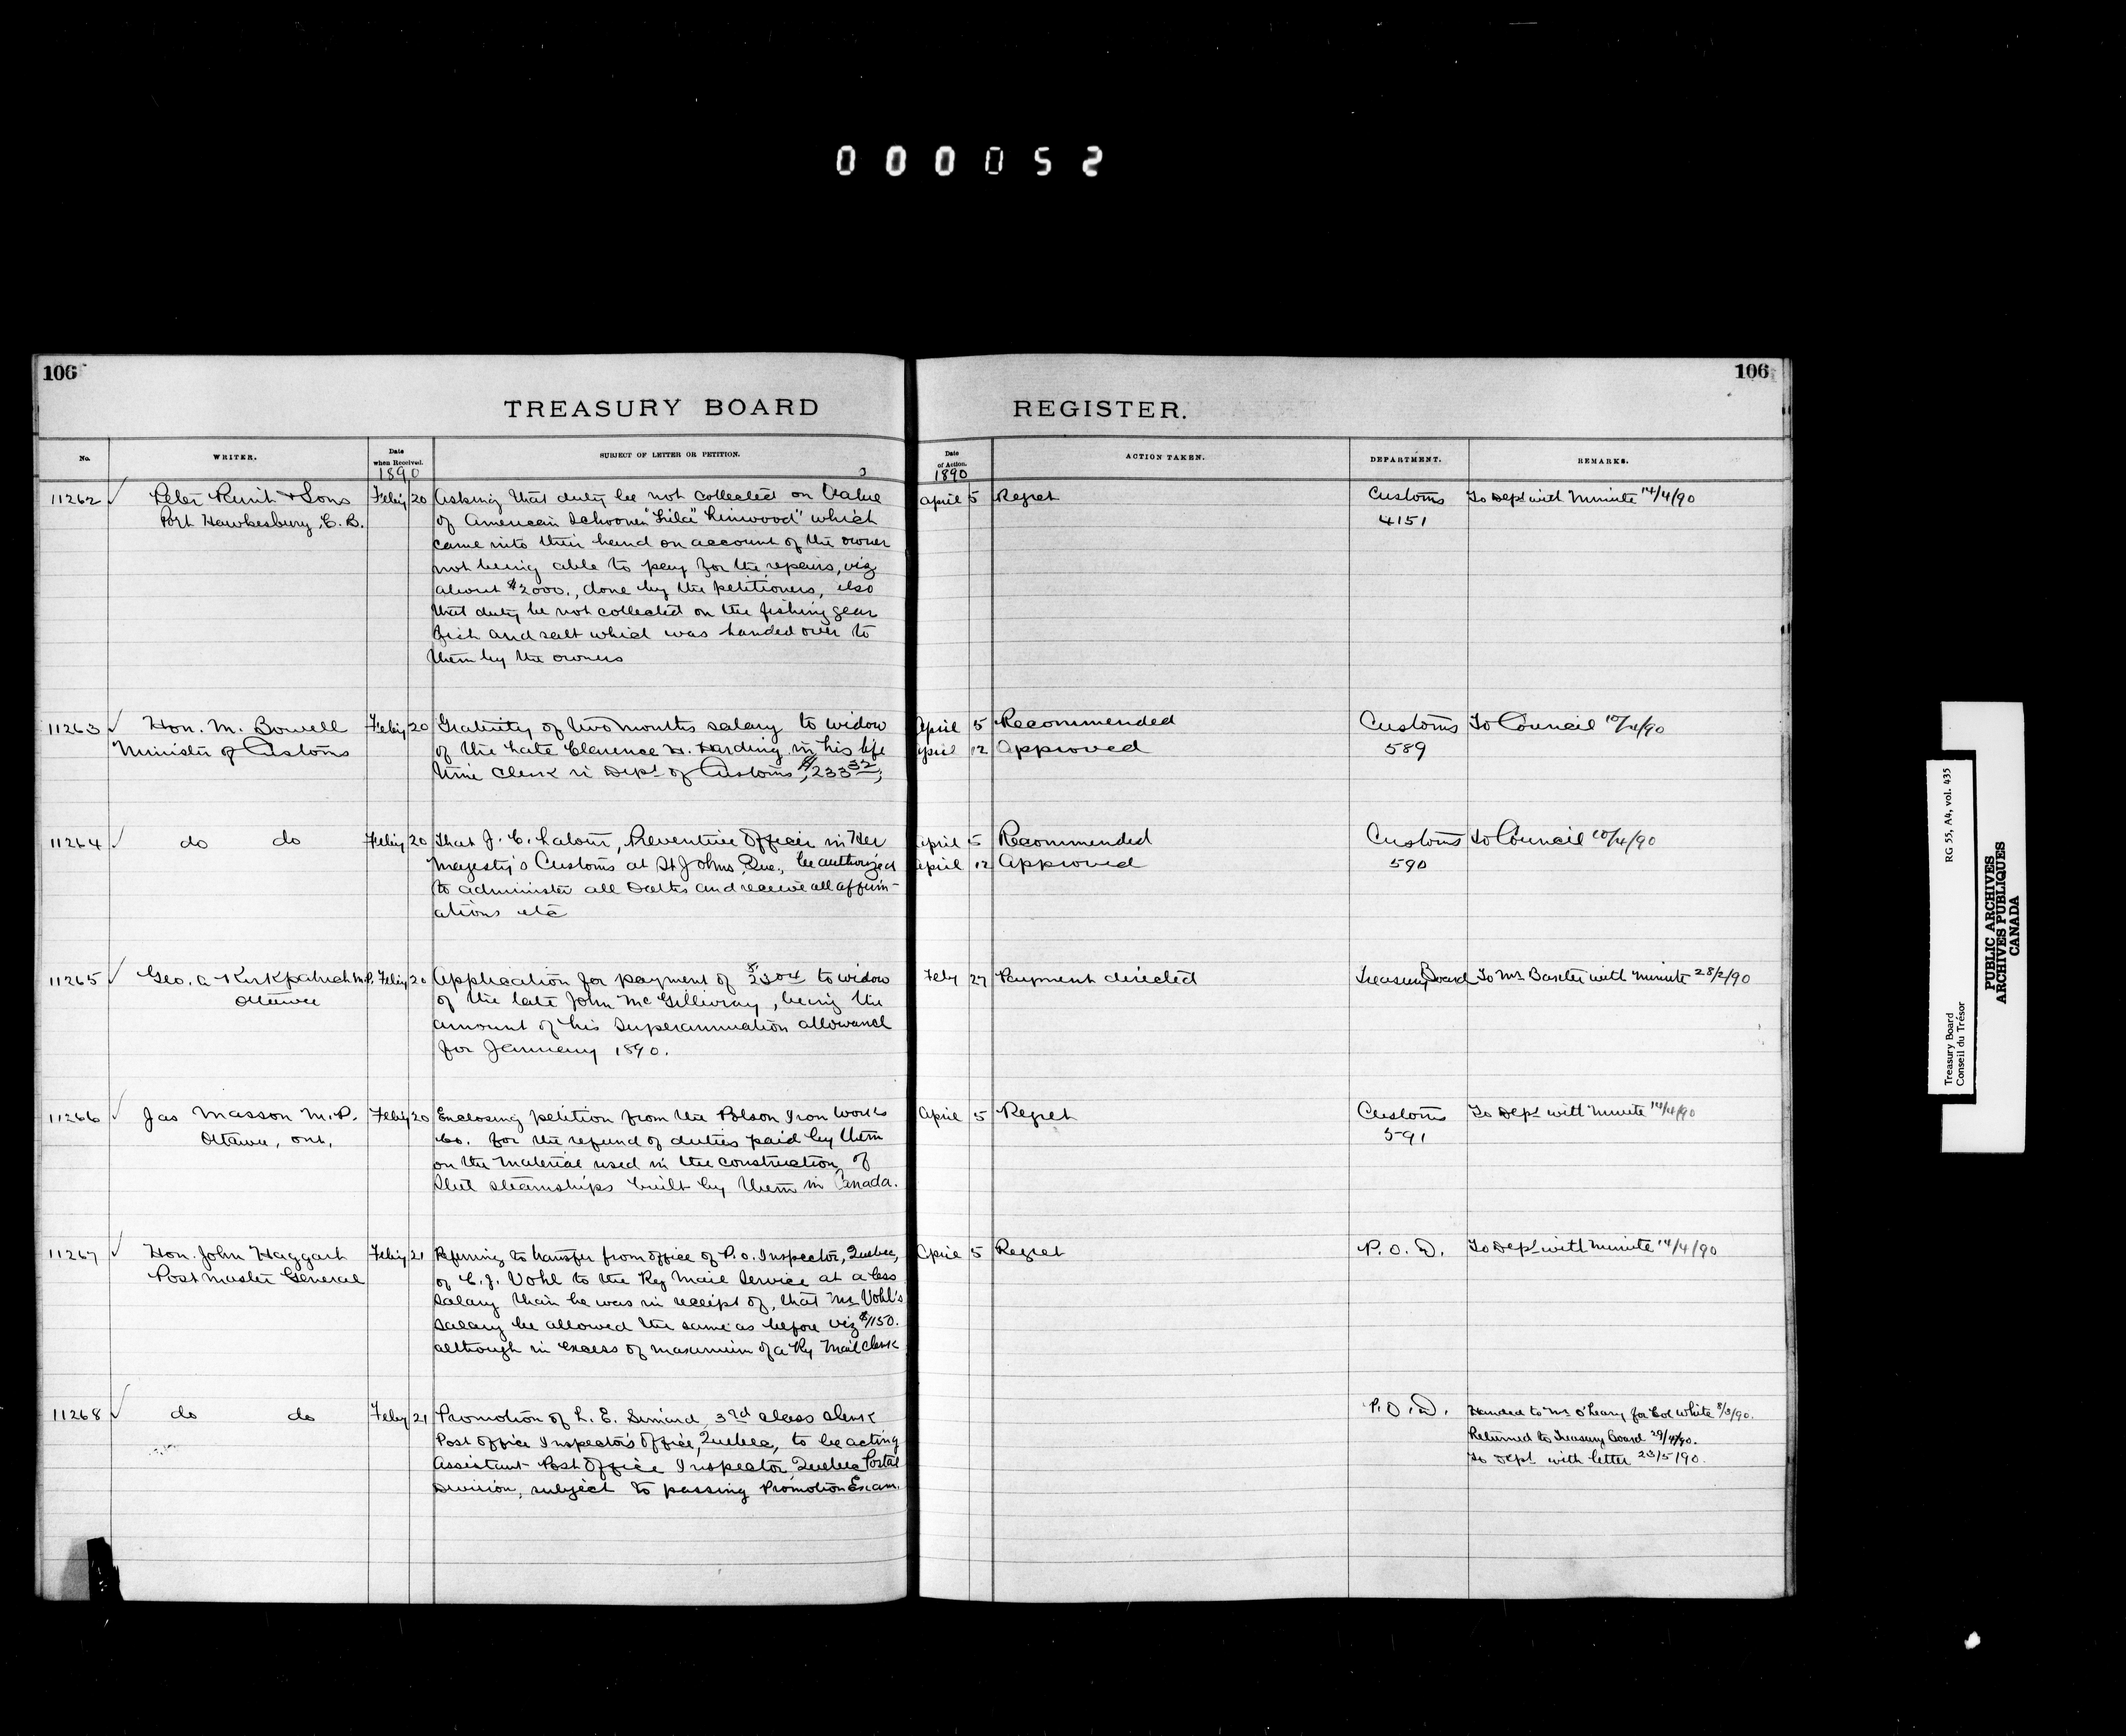 000052
106
106
TREASURY BOARD
REGISTER.
No.
WRITER.
Date when Received.
1890
SUBJECT OF LETTER OR PETITION.
Date of Action.
1890
ACTION TAKEN.
DEPARTMENT.
REMARKS.
11262 Peter & Sons Feby 20 Asking that duty be not collected on Value April 5 Regret Customs To Dept with Minute 14/4/90
Port Hawkesbury, C.B. of American Schooner which 4151
came into their hand on account of the owner
not being able to pay for the repairs, viz
about $2000., done by the petitioners, also
that duty be not collected on the fishing gear
fish and salt which was handed over to
them by the owners
11263 Hon. M. Bowell Feby 20 Gratuity of two months salary to widow April 5 Recommended Customs To Council 10/4/90
Minister of Customs of the late Clarence H. Harding in his life April 12 Approved 589
time clerk in Dept of Customs, $233 32;
11264 do do Feby 20 That J. C. , Preventive Officer in Her April 5 Recommended Customs To Council 10/4/90
Majesty's Customs at St Johns, Que., be authorized April 12 Approved 590
to administer all Oaths and receive all affirm-
ations etc
11265 Geo. A Kirkpatrick M.P. Feby 20 Application for payment of to widow Feby 27 Payment directed Treasury Board To Mr Baxter with Minute 28/2/90
Ottawa of the late John McGillivray, being the
amount of his Superannuation allowance
for January 1890.
11266 Jas Masson M.P. Feby 20 Enclosing petition from the Polson Iron Works April 5 Regret Customs To Dept with Minute 14/4/90
Ottawa, Ont, Co. for the refund of duties paid by them 591
on the material used in the construction of
Steel steamships built by them in Canada.
11267 Hon. John Haggart Feby 21 Referring to transfer from office of P.O. Inspector, Quebec, April 5 Regret P.O.D. To Dept with Minute 14/4/90
Postmaster General of C.J. Vohl to the Ry Mail Service at a less
Salary than he was in receipt of, that Mr Vohl's
salary be allowed the same as before viz $1150.
although in excess of maximum of a Ry Mail Clerk
11268 do do Feby 21 Promotion of L. E. Simard, 3rd class clerk P.O.D. Handed to Mr O'Leary for Col White 8/3/90.
Post Office Inspector's Office, Quebec, to be acting Returned to Treasury Board 29/4/90.
Assistant Post Office Inspector, Quebec Postal To Dept with letter 23/5/90.
Division, subject to passing Promotion Exam.
Treasury Board RG 55, A4, vol. 435
Conseil du Trésor
PUBLIC ARCHIVES
ARCHIVES PUBLIQUES
CANADA